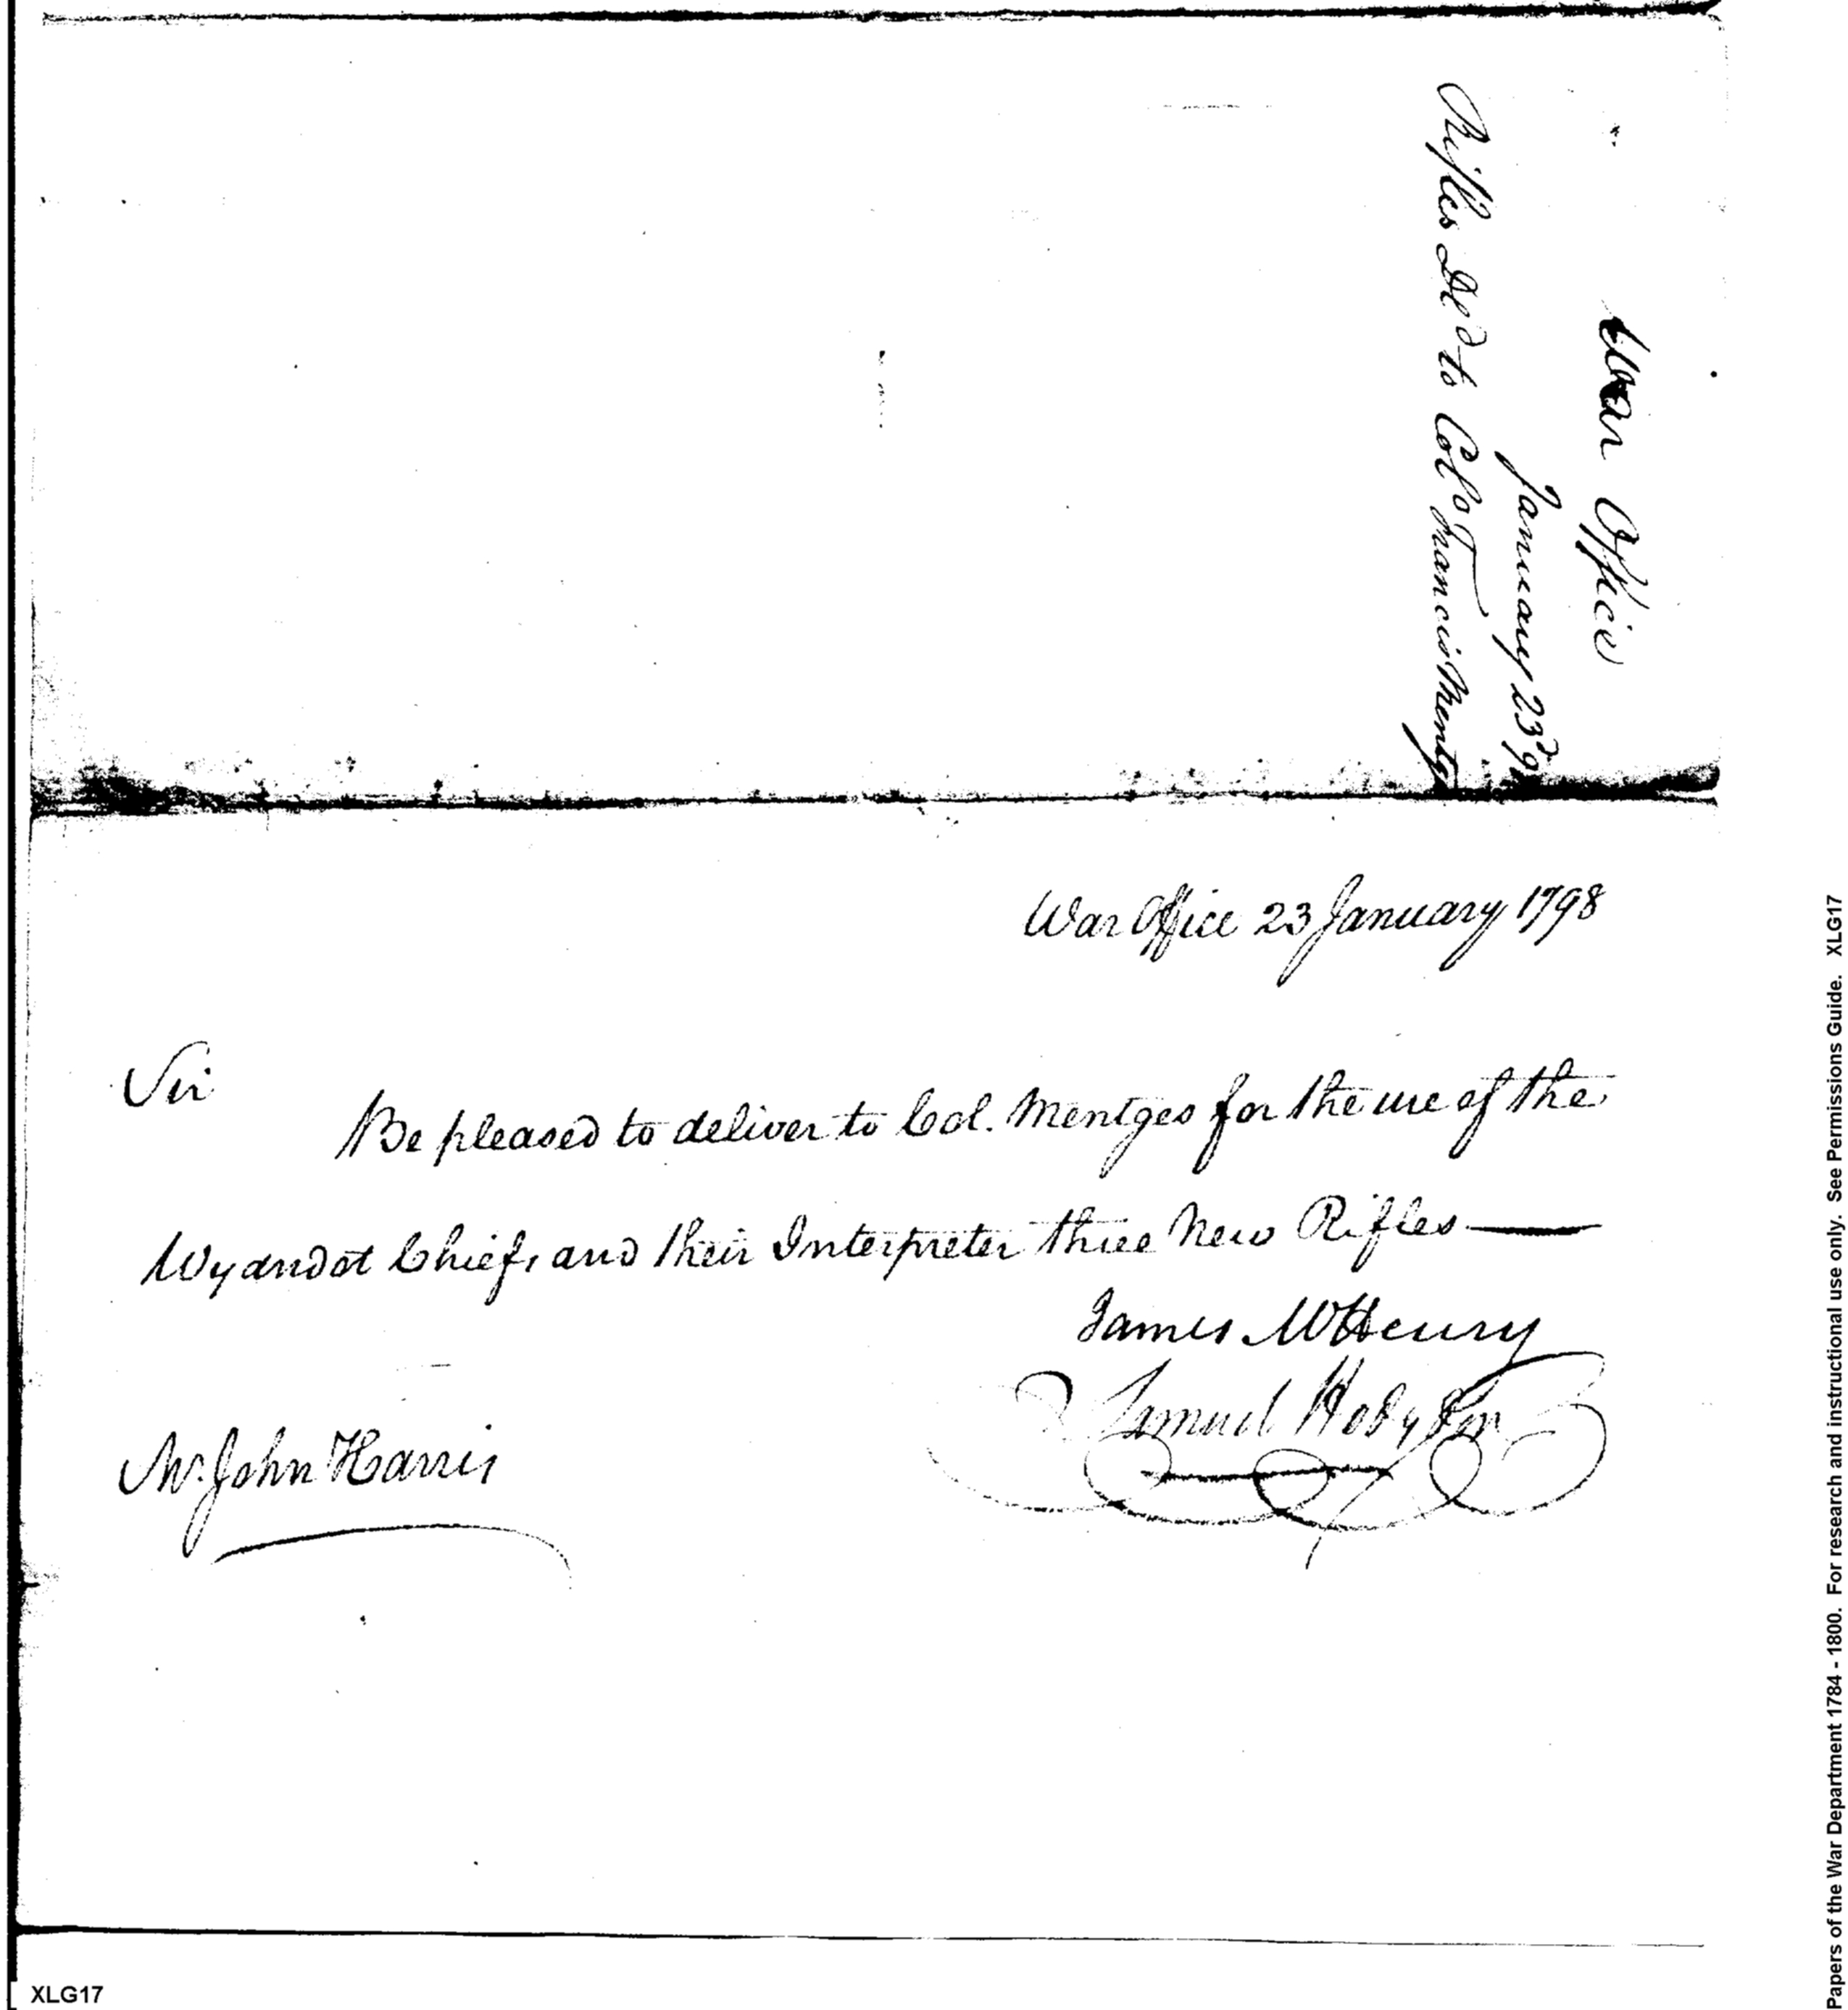 War Office
January 23d 9
Rifles Del'd to Colo Francis Mentges
War Office 23 January 1798
Sir
Be pleased to deliver to Col. Mentges for the use of the
Wyandot Chiefs and their Interpreter three New Rifles
James McHenry
Samuel Hodgdon
Mr. John Harris
XLG17
Papers of the War Department 1784 - 1800. For research and instructional use only. See Permissions Guide. XLG17